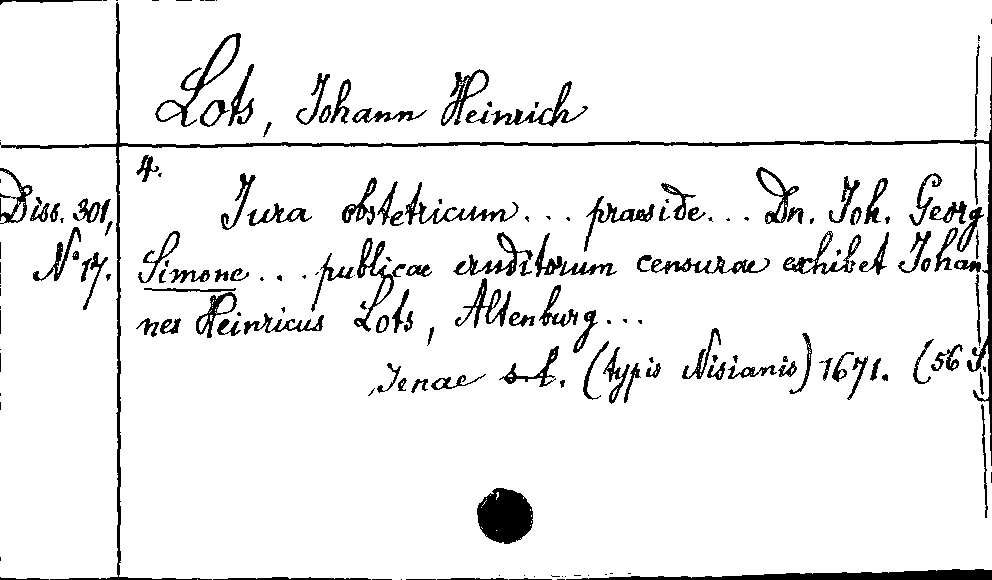 Lots, Johann Heinrich
4.
Diss. 301,
No 17.
Jura obstetricum... praeside... Dn. Joh. Georg
Simone... publicae eruditorum censurae exhibet Johan-
nes Heinricus Lots, Altenburg...
Jenae s.t. (typis Nisianis) 1671. (56 S.)